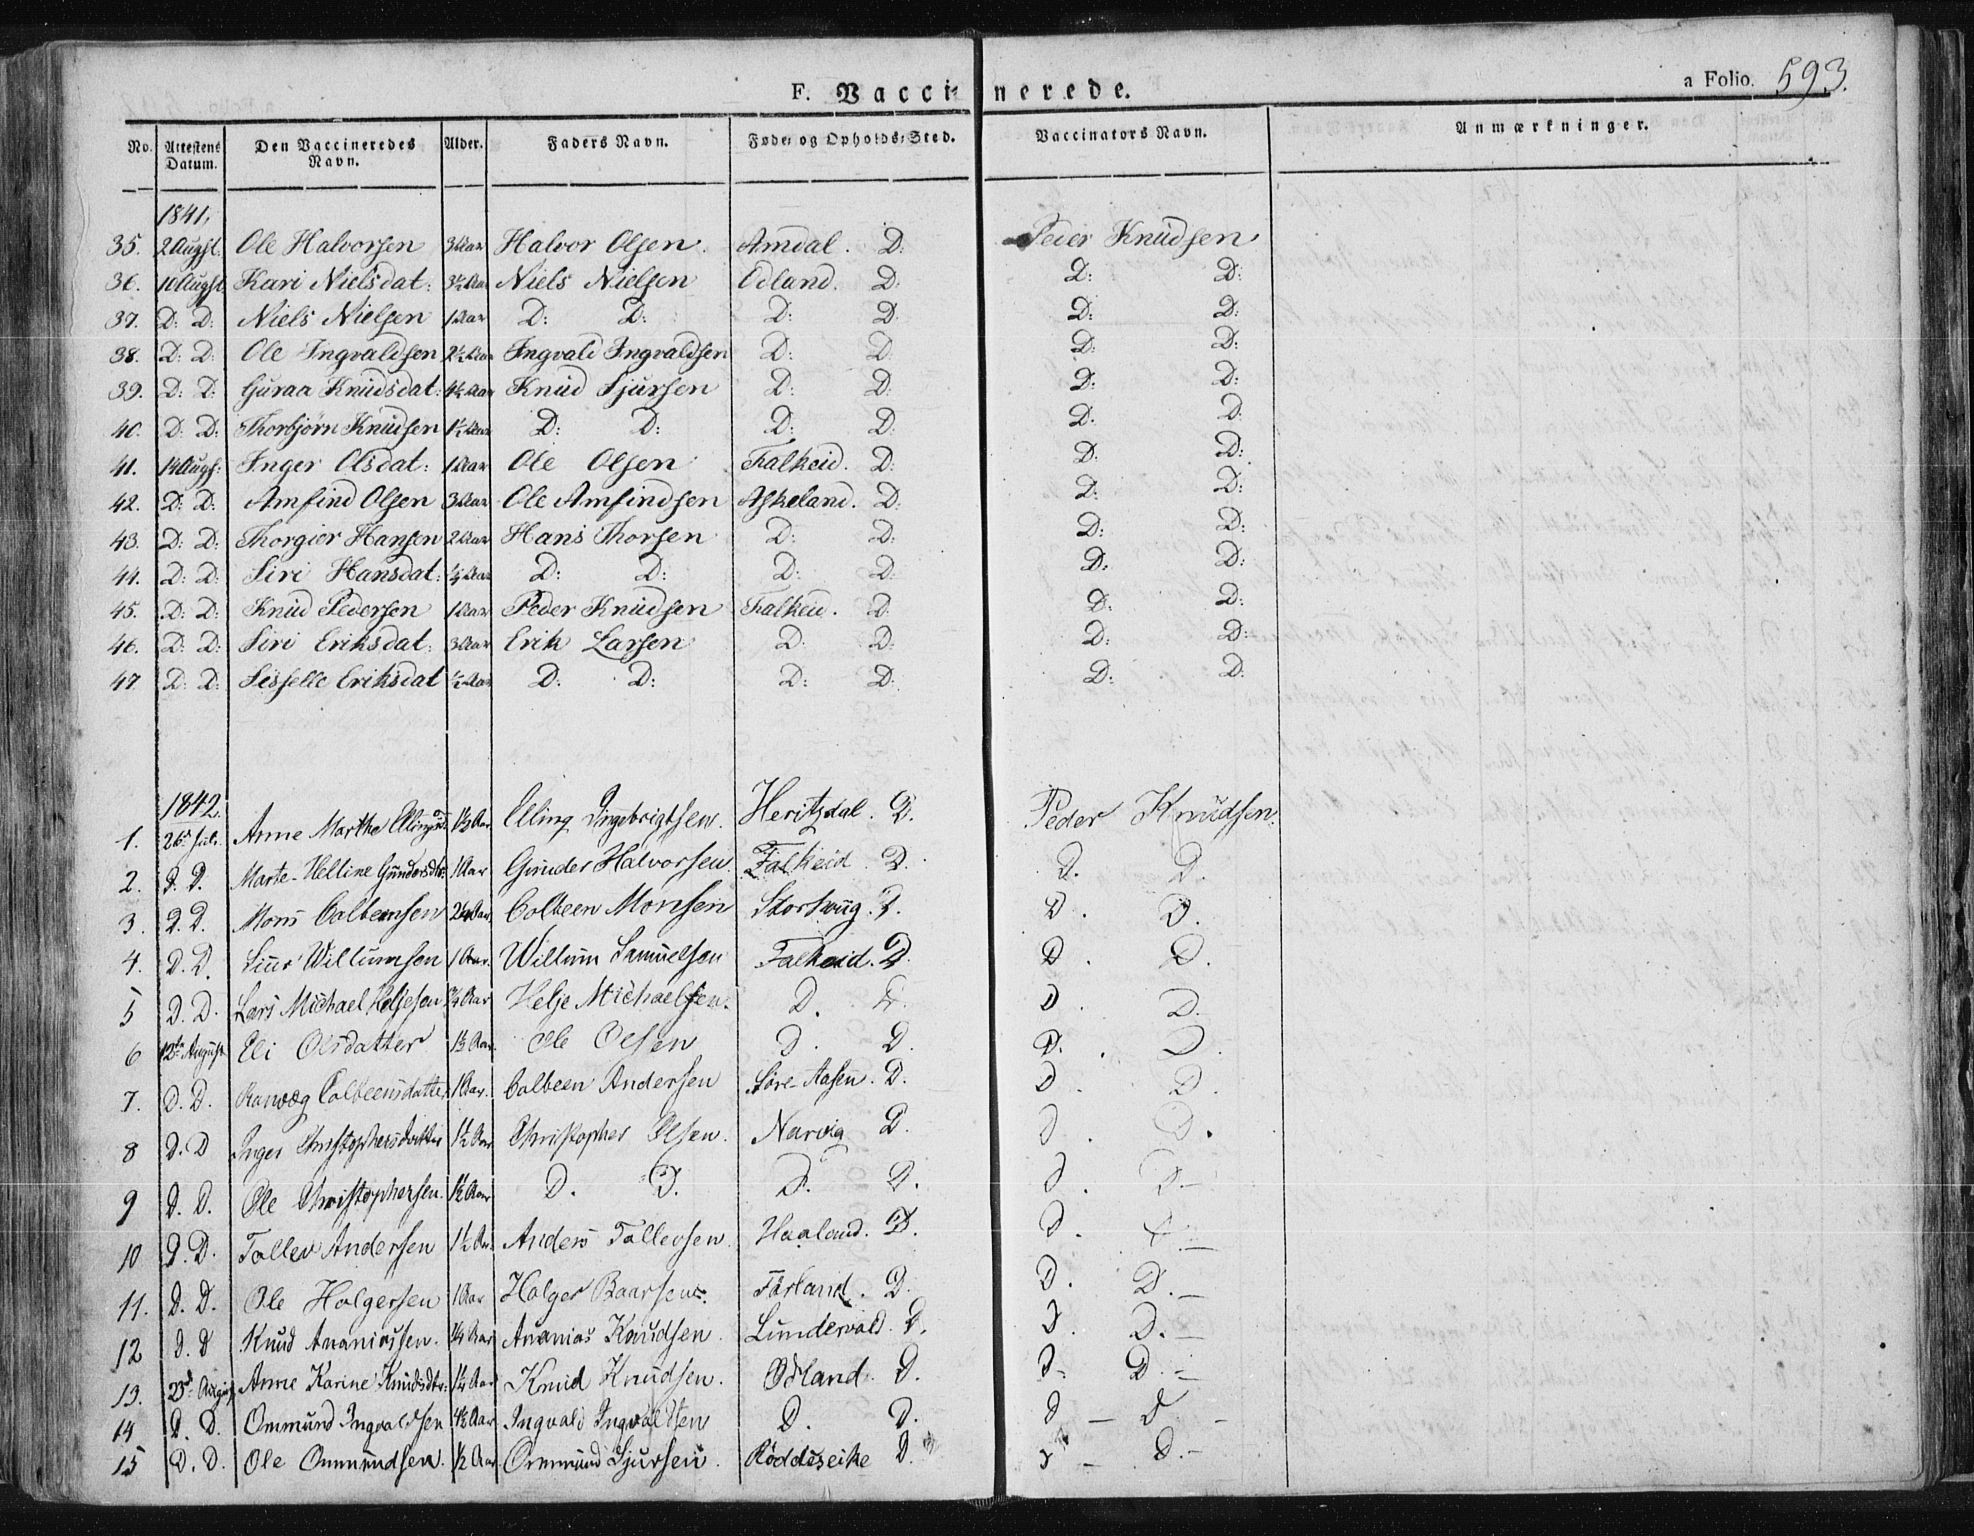 F. Vaccinerede.
a Folio. 593.
No. Attestens Datum. Den Vaccineredes Navn. Alder. Faders Navn. Føde- og Opholds-Sted. Vaccinators Navn. Anmærkninger.
1841,
35. 2 Augst. Ole Halvorsen 3 Aar Halvor Olsen. Amdal. D: Peder Knudsen
36. 10 Augst Kari Nielsdat: 3½ Aar Niels Nielsen Odland. D. D: D:
37. D: D: Niels Nielsen 1 Aar D: D: D: D. D: D:
38. D: D: Ole Ingvaldsen 2½ Aar Ingvald Ingvaldsen D: D D: D:
39. D: D: Guraa Knudsdat: 4½ Aar Knud Sjursen D: D: D: D:
40. D: D: Thorbjørn Knudsen 1½ Aar D: D: D: D: D. D
41. 14 Augs: Inger Olsdat: 1 Aar Ole Olsen Falkeid. D: D: D:
42. D: D: Amfind Olsen 3 Aar Ole Amfindsen Askeland. D: D: D:
43. D: D: Thorgier Hansen 2 Aar Hans Thorsen D: D: D: D:
44. D: D: Siri Hansdat: ¼ Aar D: D: D: D: D: D:
45. D: D: Knud Pedersen 1 Aar Peder Knudsen Falkeid. D D: D:
46. D: D: Siri Eriksdat: 3 Aar Erik Larsen D: D: D: D:
47 D: D: Sisselle Eriksdat ½ Aar D: D: D: D: D: D:
1842.
1. 26 Juli. Anne Marthe Ellingsd. 1½ Aar Elling Ingebrigtsen. Heritzdal. D. Peder Knudsen.
2. D. D. Marte Helline Gundersdtr. 1 Aar Gunder Halvorsen. Falkeid D. D. D.
3. D. D. Mons Colbensen 2¼ Aar. Colbeen Monsen D. D. D.
4. D. D. Siur Willumsen 1 Aar. Willum Samuelsen Falkeid. D D D.
5 D. D. Lars Michael Heljesen ¾ Aar Helje Michaelsen. D. D. D D.
6 12te August Eli Olsdatter 1½ Aar Ole Olsen D. D. D. D.
7. D. D. Ranvæg Colbeensdatter 1 Aar. Colbeen Andersen Søre Aasen. D. D D
8 D. D Inger Christophersdatter 1½ Aar Christopher Olsen. Narvig D. D. D.
9 D. D. Ole Christophersen. 1½ Aar D. D. D. D. D. D.—
10 D. D. Tollev Andersen 1½ Aar. Anders Tollevsen. Haaland. D. D. D.—
11. D. D. Ole Holgersen 1 Aar Holger Baarsen. Førland. D. D. D.—
12 D. D Knud Ananiassen. 1¼ Aar Ananias Knudsen. Lundervold. D. D. D.—
13. 23d. August Anne Karine Knudsdtr. 1¼ Aar Knud Knudsen. Odland. D. D- D.—
14 D. D. Ommund Ingvaldsen 4½ Aar Ingvald Ingvaldsen D. D. D — D —
15 D. D. Ole Ommundsen. ½ Aar Ommund Sjursen. D. D — D.—